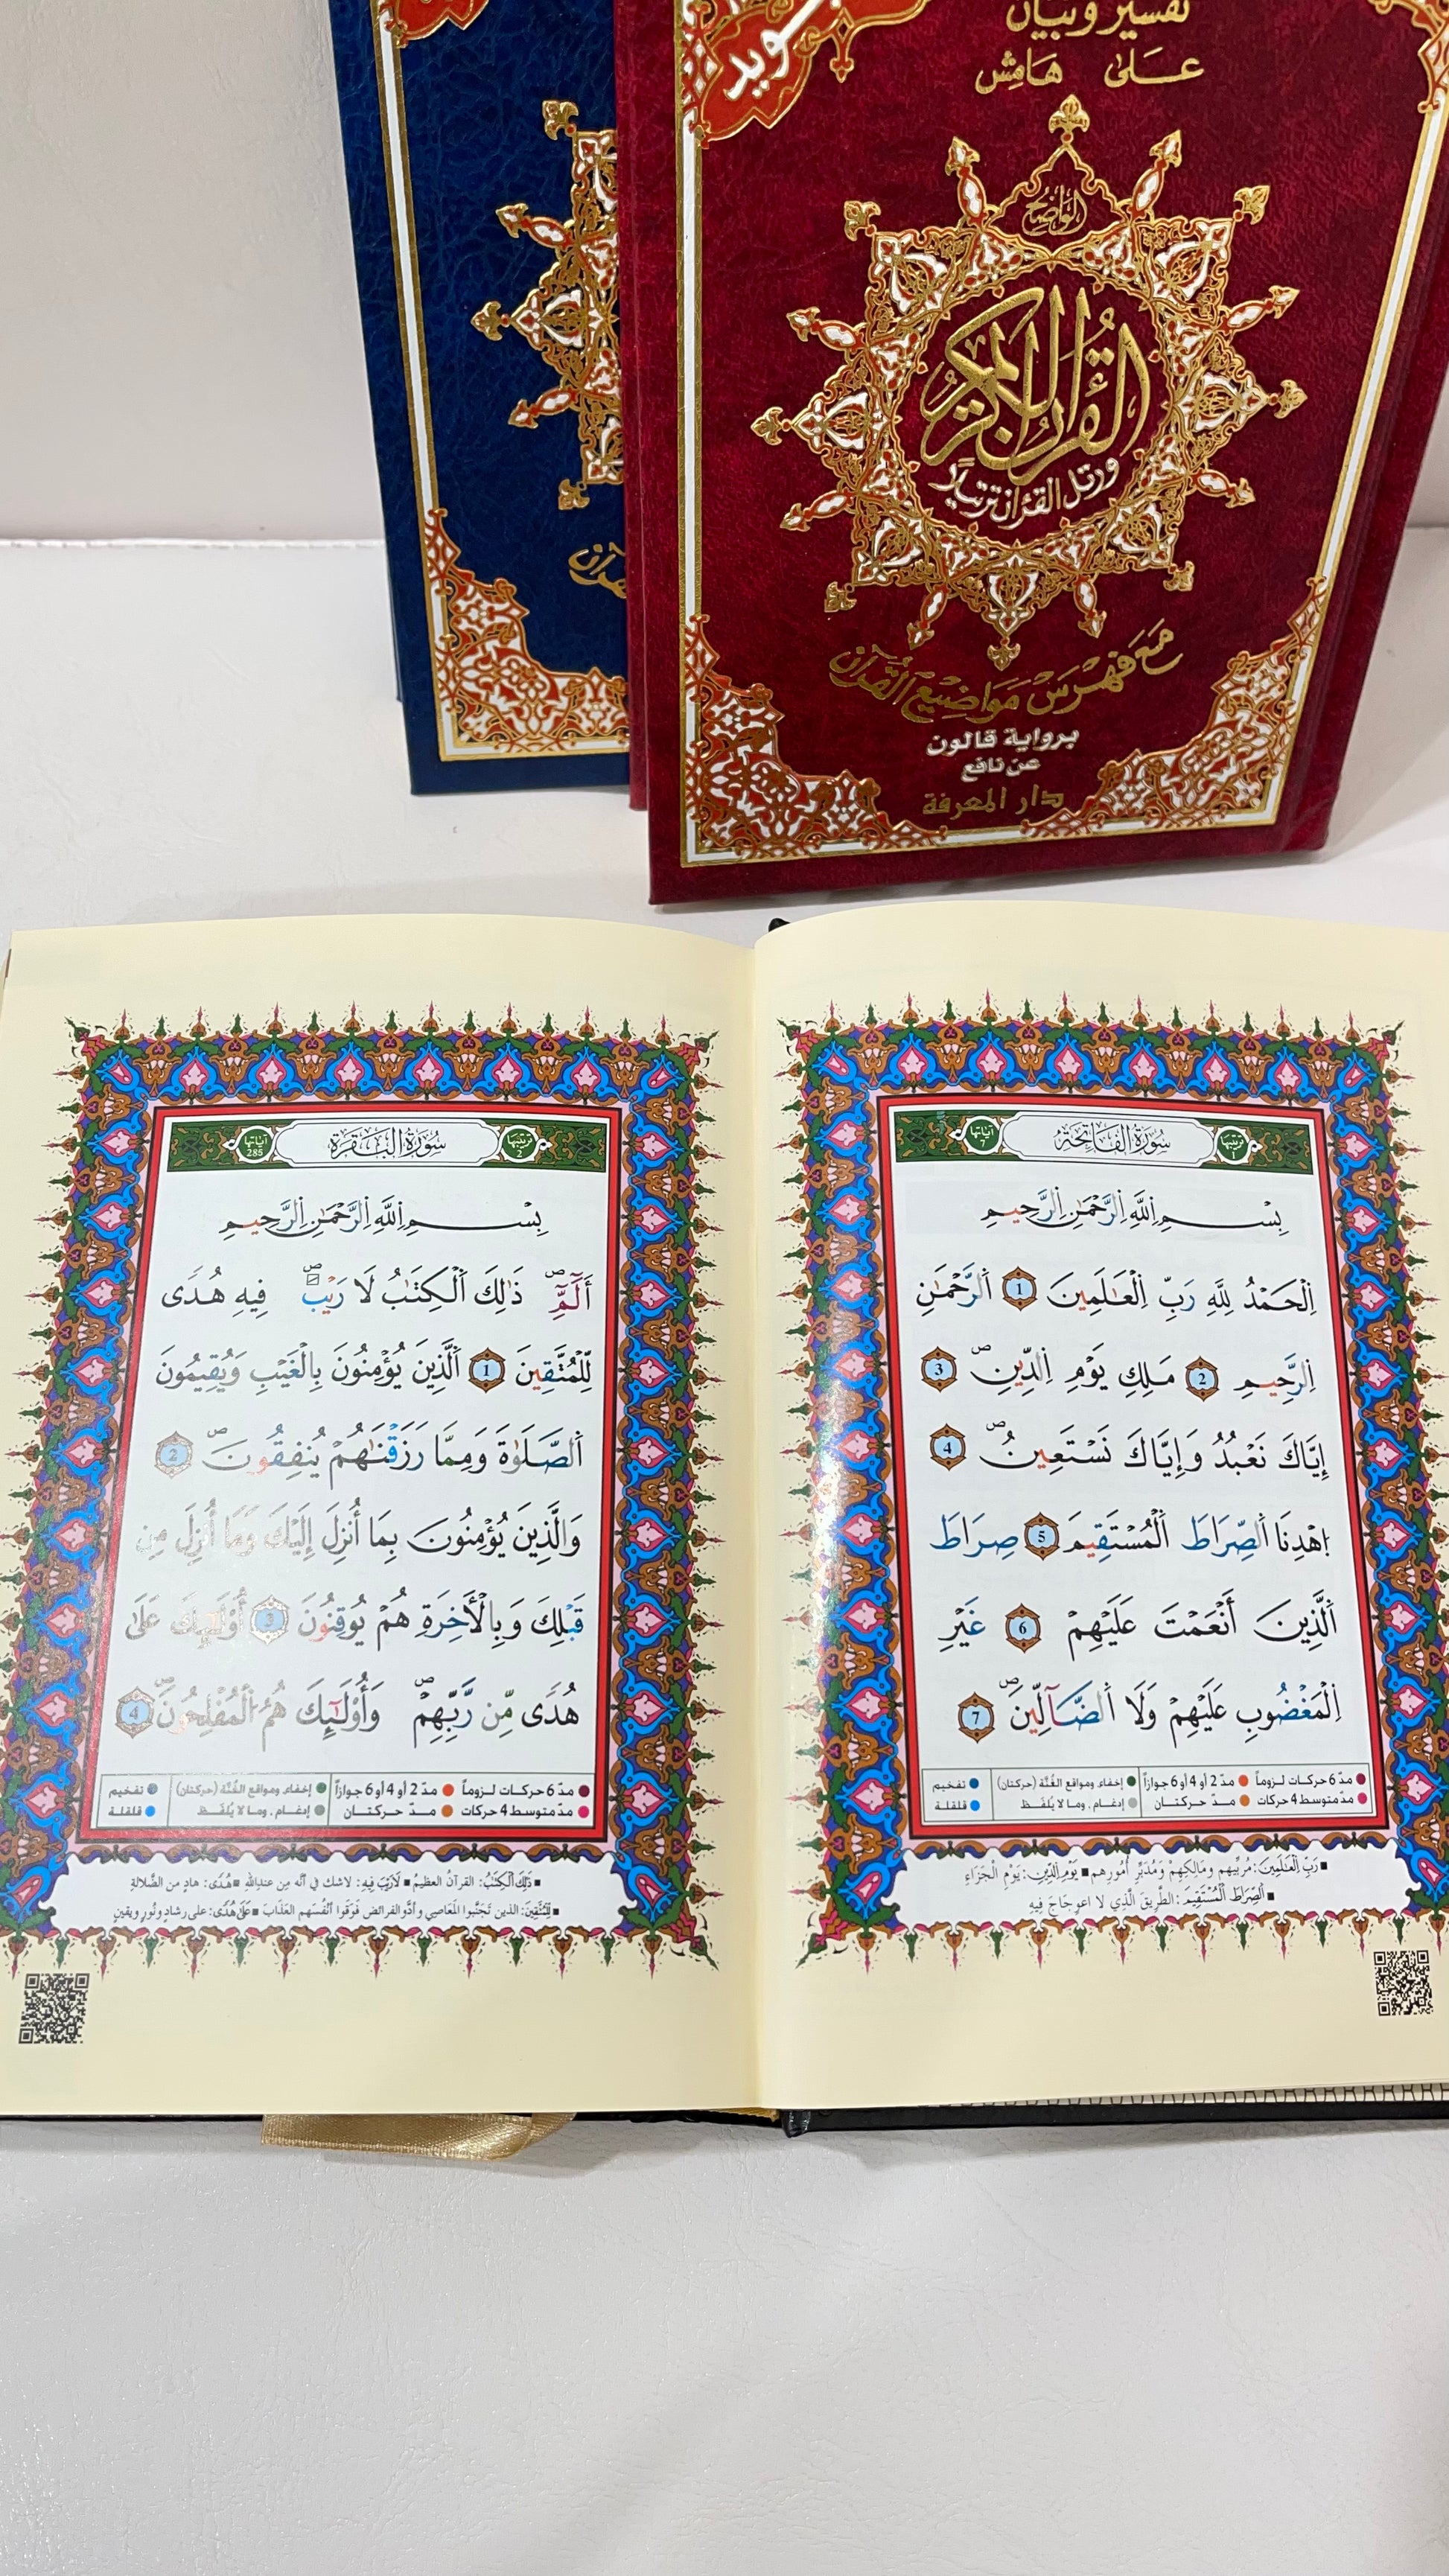 تفسير وبيان
على هامش
الواضح
القرآن الكريم
ورتل القرءان ترتيلا
مع فهرس مواضيع القرآن
برواية قالون
عن نافع
دار المعرفة
ترتيبها 1 سُورَةُ الفَاتِحَة آياتها 7
بِسْمِ اِللَّهِ اِلرَّحْمَٰنِ اِلرَّحِيمِ
اِلْحَمْدُ لِلَّهِ رَبِّ اِلْعَٰلَمِينَ 1 اَلرَّحْمَٰنِ
اِلرَّحِيمِ 2 مَلِكِ يَوْمِ اِلدِّينِ ۖ 3
إِيَّاكَ نَعْبُدُ وَإِيَّاكَ نَسْتَعِينُ ۖ 4
اِهْدِنَا اَلصِّرَاطَ اَلْمُسْتَقِيمَ 5 صِرَاطَ
اَلَّذِينَ أَنْعَمْتَ عَلَيْهِمْ 6 غَيْرِ
اِلْمَغْضُوبِ عَلَيْهِمْ وَلَا اَلضَّآلِّينَ ۖ 7
مدّ 6 حركات لـزوماً مدّ 2 أو 4 أو 6 جوازاً إخفاء ومواقع الغُنَّة (حركتان) تفخيم
مدّ متوسط 4 حركات مـدّ حركتـان إدغام . وما لا يُلفَـظ قلقلة
رَبِّ اِلْعَٰلَمِينَ: مُرَبِّيهم ومَالِكِهِمْ وَمُدَبِّرِ أُمُورِهم يَوْمِ اِلدِّينِ: يَوْمِ الْجَزَاءِ
اَلصِّرَاطَ اَلْمُسْتَقِيمَ: الطَّرِيقَ الَّذِي لا اعوِجَاجَ فِيهِ
ترتيبها 2 سُورَةُ البَقَرَة آياتها 285
بِسْمِ اِللَّهِ اِلرَّحْمَٰنِ اِلرَّحِيمِ
أَلَٓمِّٓ ۖ ذَٰلِكَ اَلْكِتَٰبُ لَا رَيْبَ ۖ فِيهِ هُدًى
لِّلْمُتَّقِينَ 1 اَلَّذِينَ يُؤْمِنُونَ بِالْغَيْبِ وَيُقِيمُونَ
اَلصَّلَوٰةَ وَمِمَّا رَزَقْنَٰهُمْ يُنفِقُونَ ۖ 2
وَالَّذِينَ يُؤْمِنُونَ بِمَا أُنزِلَ إِلَيْكَ وَمَا أُنزِلَ مِن
قَبْلِكَ وَبِالْأَخِرَةِ هُمْ يُوقِنُونَ 3 أُوْلَٰٓئِكَ عَلَىٰ
هُدًى مِّن رَّبِّهِمْ ۖ وَأُوْلَٰٓئِكَ هُمُ اُلْمُفْلِحُونَ ۖ 4
مدّ 6 حركات لـزوماً مدّ 2 أو 4 أو 6 جوازاً إخفاء ومواقع الغُنَّة (حركتان) تفخيم
مدّ متوسط 4 حركات مـدّ حركتـان إدغام . وما لا يُلفَـظ قلقلة
ذَٰلِكَ اَلْكِتَٰبُ: القرآنُ العظيمُ لَا رَيْبَ فِيهِ: لا شك في أنَّه مِن عندِ الله هُدًى: هادٍ من الضَّلالةِ
لِّلْمُتَّقِينَ: الذين تَجَنَّبوا المَعَاصِي وأدَّوا الفرائضَ فوَقَوا أنْفُسَهم العَذَابَ عَلَىٰ هُدًى: على رشادٍ ونُورٍ ويقينٍ